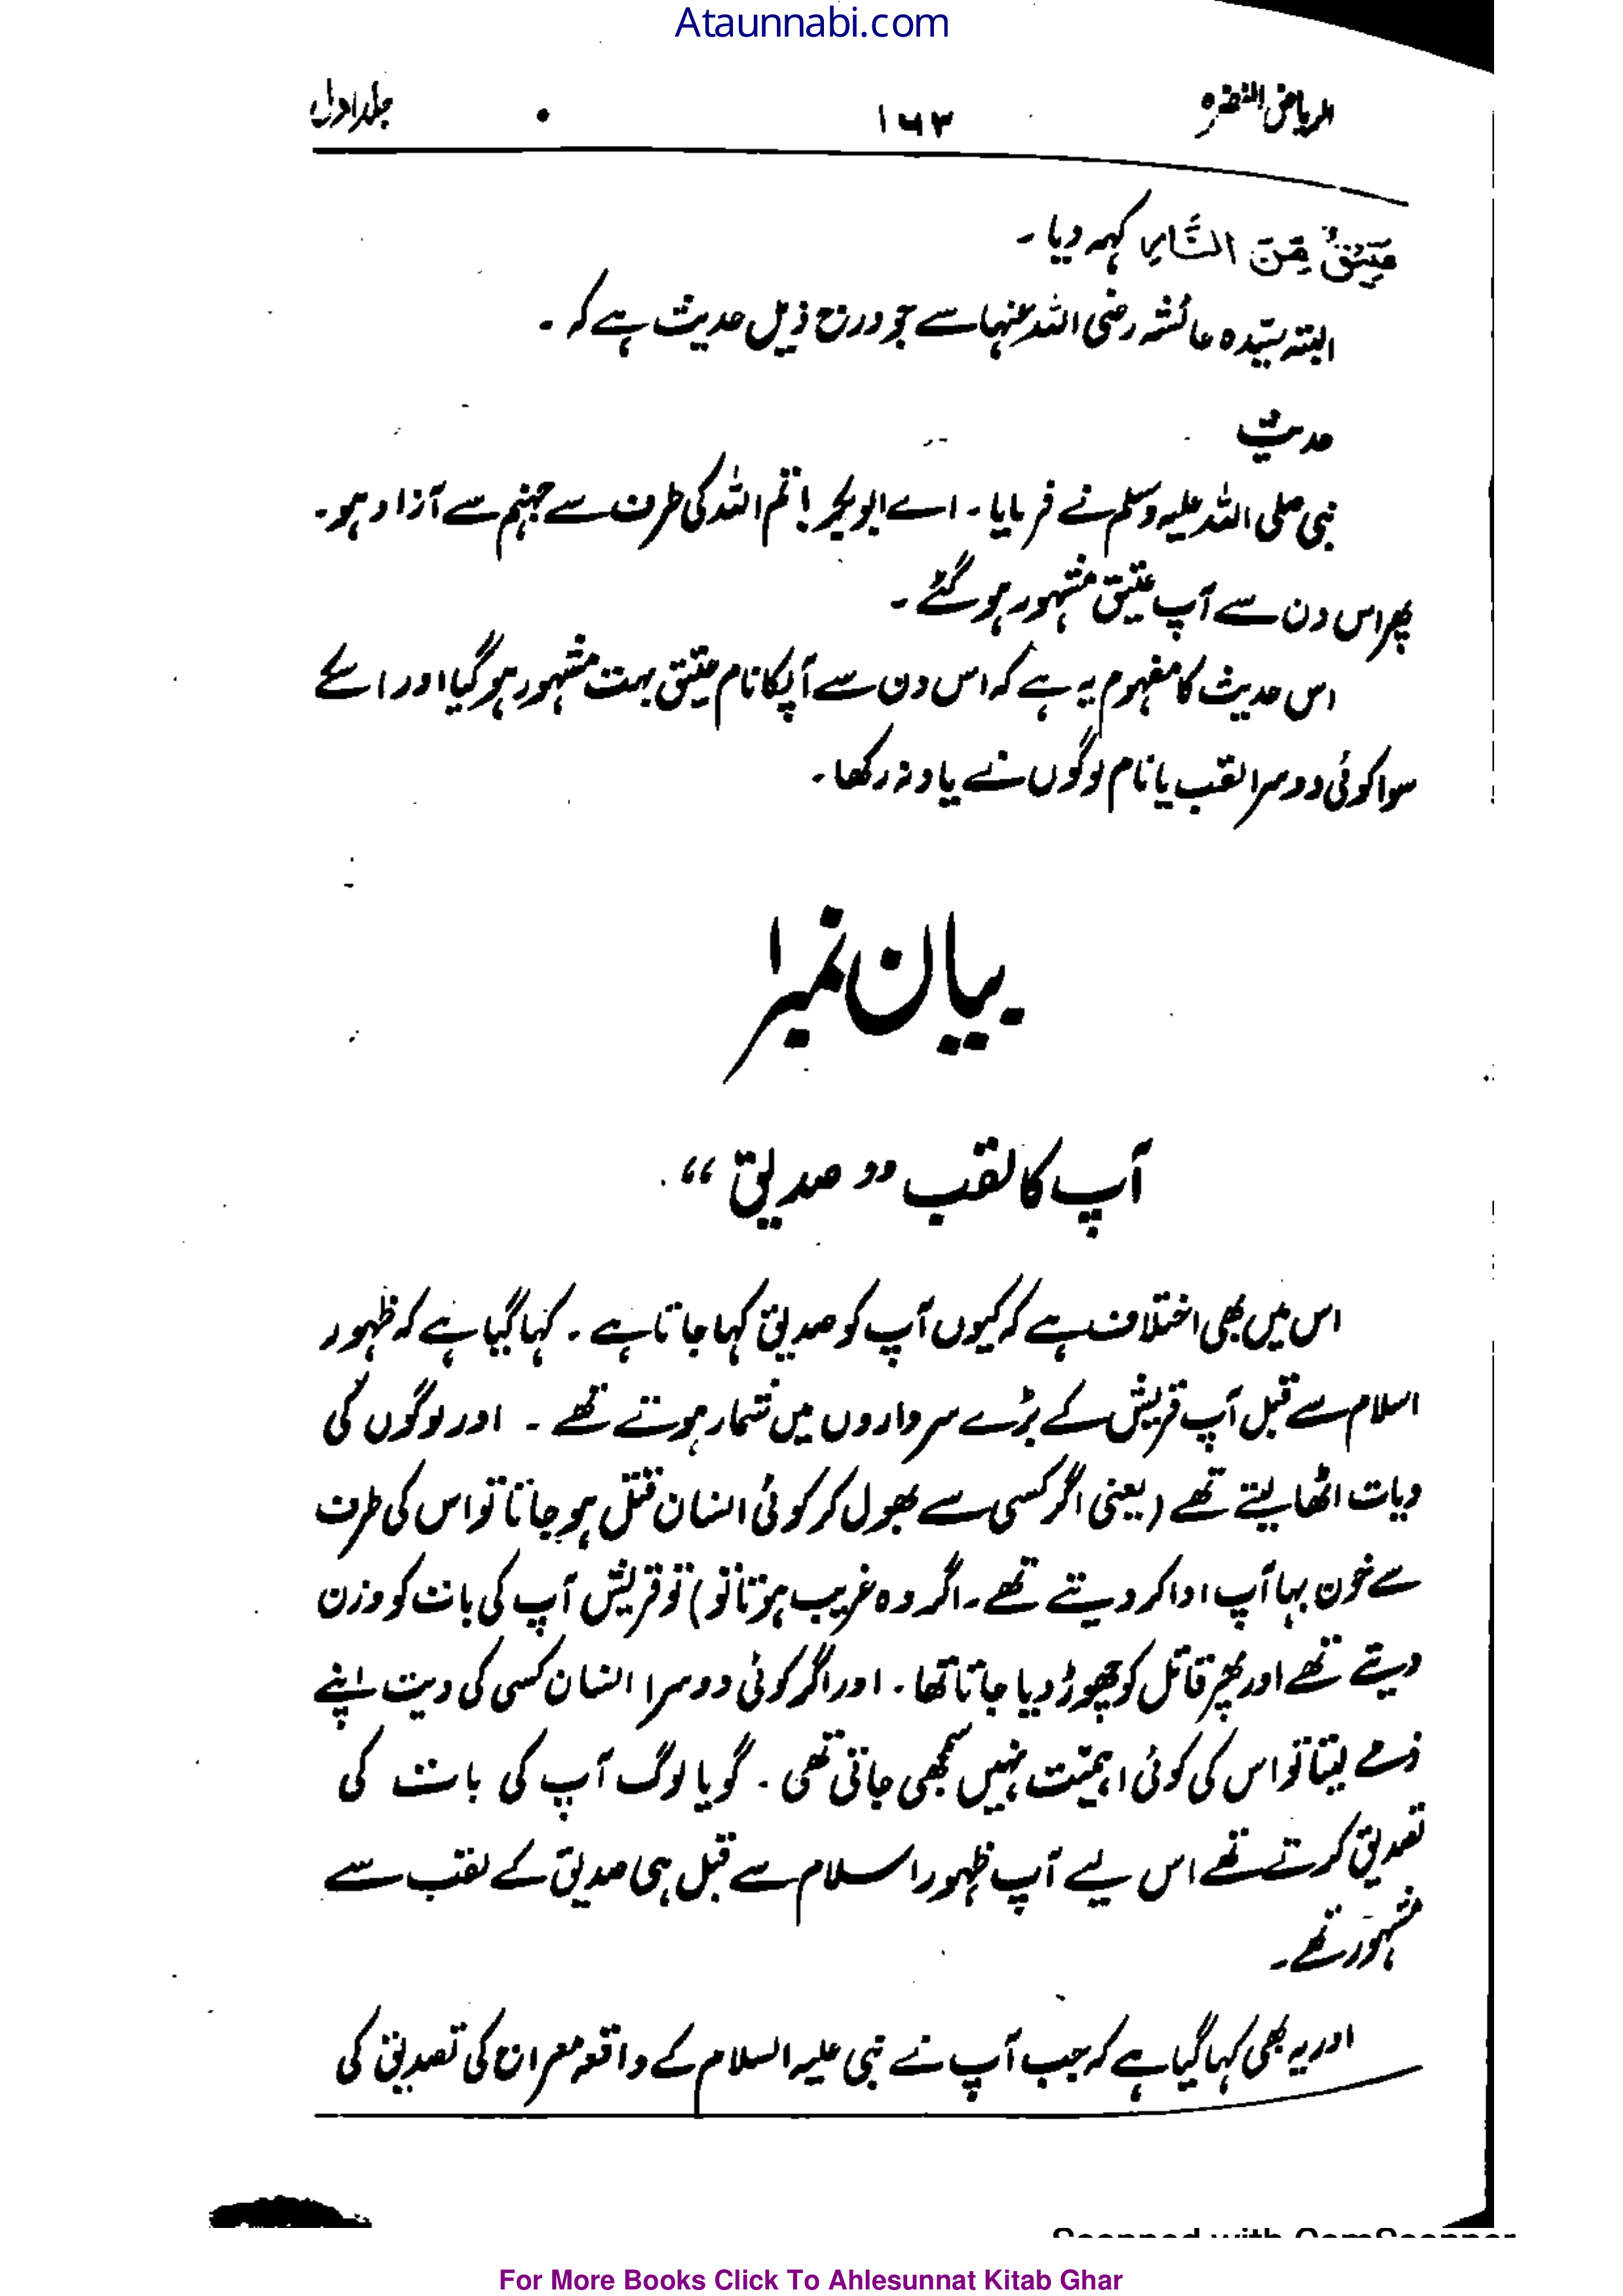 Ataunnabi.com
الریاض النضرہ ۱۶۳ جلد اول
عَتِيْقٌ مِّنَ النَّارِ کہہ دیا۔
البتہ سیّدہ عائشہ رضی اللہ عنہا سے جو درج ذیل حدیث ہے کہ۔
حدیث
نبی صلی اللہ علیہ وسلم نے فرمایا۔ اے ابوبکر! تم اللہ کی طرف سے جہنم سے آزاد ہو۔
پھر اس دن سے آپ عتیق مشہور ہو گئے۔
اس حدیث کا مفہوم یہ ہے کہ اس دن سے آپکا نام عتیق بہت مشہور ہو گیا اور اسکے
سوا کوئی دوسرا لقب یا نام لوگوں نے یاد نہ رکھا۔
بیان نمبر ۱
آپ کا لقب ”صدیق“
اس میں بھی اختلاف ہے کہ کیوں آپ کو صدیق کہا جاتا ہے۔ کہا گیا ہے کہ ظہور
اسلام سے قبل آپ قریش کے بڑے سرداروں میں شمار ہوتے تھے۔ اور لوگوں کی
دیات اٹھا لیتے تھے (یعنی اگر کسی سے بھول کر کوئی انسان قتل ہو جاتا تو اس کی طرف
سے خون بہا آپ ادا کر دیتے تھے۔ اگر وہ غریب ہوتا تو) تو قریش آپ کی بات کو وزن
دیتے تھے اور پھر قاتل کو چھوڑ دیا جاتا تھا۔ اور اگر کوئی دوسرا انسان کسی کی دیت اپنے
ذمے لیتا تو اس کی کوئی اہمیّت نہیں سمجھی جاتی تھی۔ گویا لوگ آپ کی بات کی
تصدیق کرتے تھے اس لیے آپ ظہور اسلام سے قبل ہی صدیق کے لقب سے
مشہور تھے۔
اور یہ بھی کہا گیا ہے کہ جب آپ نے نبی علیہ السلام کے واقعہ معراج کی تصدیق کی
Scanned with CamScanner
For More Books Click To Ahlesunnat Kitab Ghar